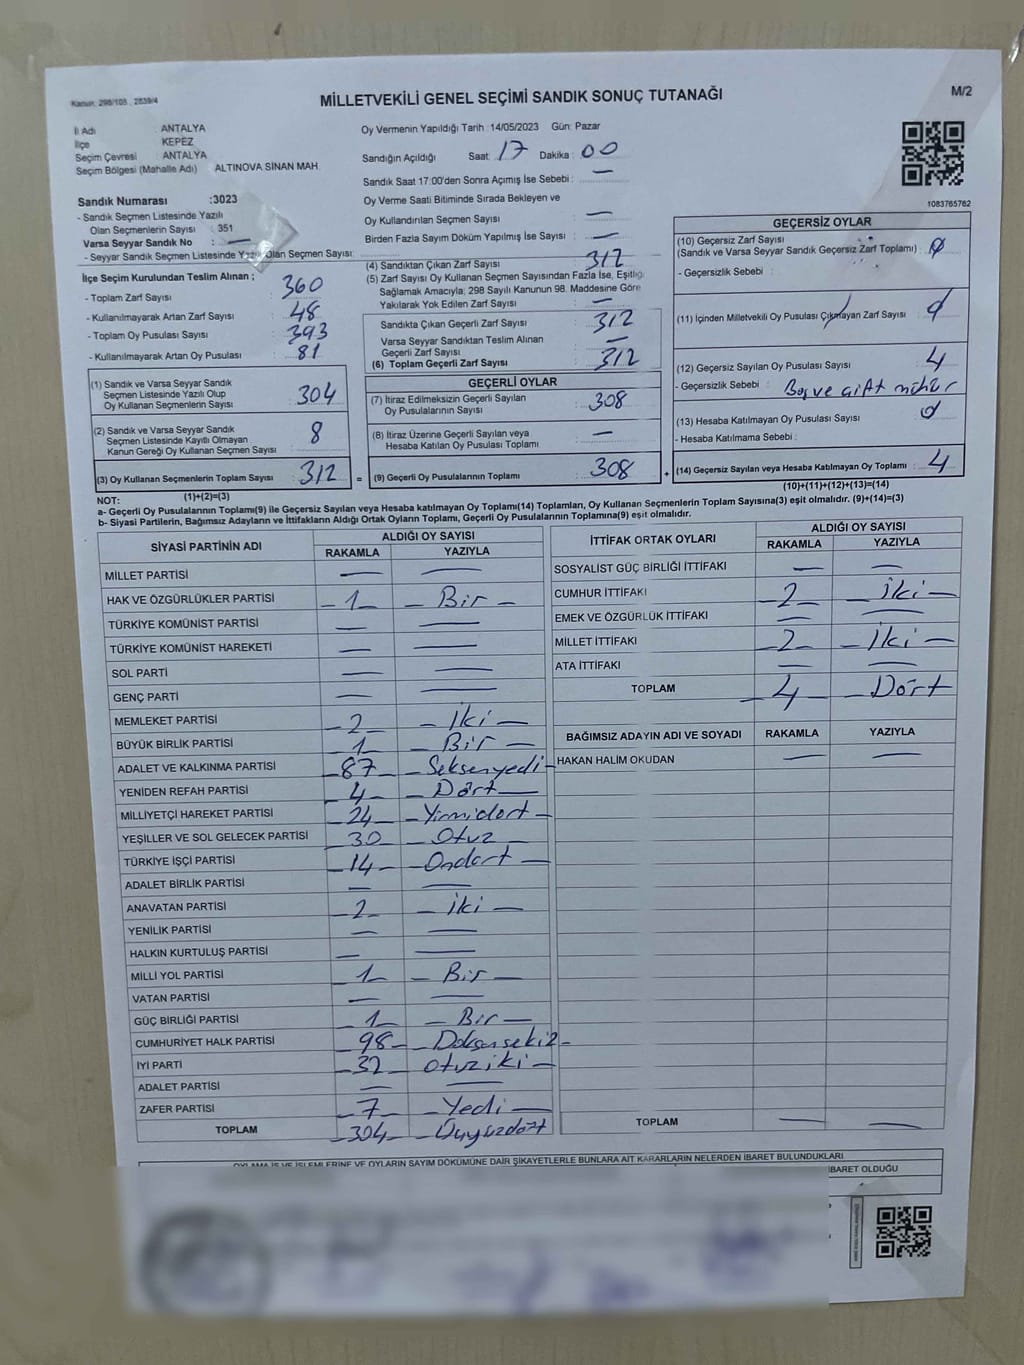 Kanun: 298/105 , 2839/4
MİLLETVEKİLİ GENEL SEÇİMİ SANDIK SONUÇ TUTANAĞI
M/2
İl Adı : ANTALYA
İlçe : KEPEZ
Seçim Çevresi : ANTALYA
Seçim Bölgesi (Mahalle Adı) : ALTINOVA SİNAN MAH.
Oy Vermenin Yapıldığı Tarih :14/05/2023 Gün: Pazar
Sandığın Açıldığı Saat: 17 Dakika: 00
Sandık Saat 17:00'den Sonra Açımış İse Sebebi : —
Oy Verme Saati Bitiminde Sırada Bekleyen ve
Oy Kullandırılan Seçmen Sayısı : —
Birden Fazla Sayım Döküm Yapılmış İse Sayısı : —
1083765762
Sandık Numarası :3023
- Sandık Seçmen Listesinde Yazılı
Olan Seçmenlerin Sayısı : 351
Varsa Seyyar Sandık No : —
- Seyyar Sandık Seçmen Listesinde Yazılı Olan Seçmen Sayısı:
İlçe Seçim Kurulundan Teslim Alınan ;
- Toplam Zarf Sayısı : 360
- Kullanılmayarak Artan Zarf Sayısı : 48
- Toplam Oy Pusulası Sayısı : 393
- Kullanılmayarak Artan Oy Pusulası : 81
(1) Sandık ve Varsa Seyyar Sandık
Seçmen Listesinde Yazılı Olup
Oy Kullanan Seçmenlerin Sayısı : 304
(2) Sandık ve Varsa Seyyar Sandık
Seçmen Listesinde Kayıtlı Olmayan
Kanun Gereği Oy Kullanan Seçmen Sayısı : 8
(3) Oy Kullanan Seçmenlerin Toplam Sayısı : 312
(1)+(2)=(3)
(4) Sandıktan Çıkan Zarf Sayısı : 312
(5) Zarf Sayısı Oy Kullanan Seçmen Sayısından Fazla İse, Eşitliği
Sağlamak Amacıyla; 298 Sayılı Kanunun 98. Maddesine Göre
Yakılarak Yok Edilen Zarf Sayısı : —
Sandıkta Çıkan Geçerli Zarf Sayısı : 312
Varsa Seyyar Sandıktan Teslim Alınan
Geçerli Zarf Sayısı : —
(6) Toplam Geçerli Zarf Sayısı : 312
GEÇERLİ OYLAR
(7) İtiraz Edilmeksizin Geçerli Sayılan
Oy Pusulalarının Sayısı : 308
(8) İtiraz Üzerine Geçerli Sayılan veya
Hesaba Katılan Oy Pusulası Toplamı : —
= (9) Geçerli Oy Pusulalarının Toplamı : 308 +
GEÇERSİZ OYLAR
(10) Geçersiz Zarf Sayısı
(Sandık ve Varsa Seyyar Sandık Geçersiz Zarf Toplamı) : 0
- Geçersizlik Sebebi :
(11) İçinden Milletvekili Oy Pusulası Çıkmayan Zarf Sayısı : 0
(12) Geçersiz Sayılan Oy Pusulası Sayısı : 4
- Geçersizlik Sebebi : Boş ve çift mühür
(13) Hesaba Katılmayan Oy Pusulası Sayısı : 0
- Hesaba Katılmama Sebebi :
(14) Geçersiz Sayılan veya Hesaba Katılmayan Oy Toplamı : 4
(10)+(11)+(12)+(13)=(14)
NOT:
a- Geçerli Oy Pusulalarının Toplamı(9) ile Geçersiz Sayılan veya Hesaba katılmayan Oy Toplamı(14) Toplamları, Oy Kullanan Seçmenlerin Toplam Sayısına(3) eşit olmalıdır. (9)+(14)=(3)
b- Siyasi Partilerin, Bağımsız Adayların ve İttifakların Aldığı Ortak Oyların Toplamı, Geçerli Oy Pusulalarının Toplamına(9) eşit olmalıdır.
SİYASİ PARTİNİN ADI ALDIĞI OY SAYISI
RAKAMLA YAZIYLA
MİLLET PARTİSİ — —
HAK VE ÖZGÜRLÜKLER PARTİSİ –1– – Bir –
TÜRKİYE KOMÜNİST PARTİSİ — —
TÜRKİYE KOMÜNİST HAREKETİ — —
SOL PARTİ — —
GENÇ PARTİ — —
MEMLEKET PARTİSİ –2– – İki –
BÜYÜK BİRLİK PARTİSİ –1– – Bir –
ADALET VE KALKINMA PARTİSİ –87– – Seksenyedi –
YENİDEN REFAH PARTİSİ –4– – Dört –
MİLLİYETÇİ HAREKET PARTİSİ –24– – Yirmidört –
YEŞİLLER VE SOL GELECEK PARTİSİ –30– – Otuz
TÜRKİYE İŞÇİ PARTİSİ –14– – Ondört –
ADALET BİRLİK PARTİSİ — —
ANAVATAN PARTİSİ –2– – İki –
YENİLİK PARTİSİ — —
HALKIN KURTULUŞ PARTİSİ — —
MİLLİ YOL PARTİSİ –1– – Bir –
VATAN PARTİSİ — —
GÜÇ BİRLİĞİ PARTİSİ –1– – Bir –
CUMHURİYET HALK PARTİSİ –98– – Doksansekiz –
İYİ PARTİ –32– Otuziki –
ADALET PARTİSİ — —
ZAFER PARTİSİ –7– – Yedi –
TOPLAM –304– – Üçyüzdört
İTTİFAK ORTAK OYLARI ALDIĞI OY SAYISI
RAKAMLA YAZIYLA
SOSYALİST GÜÇ BİRLİĞİ İTTİFAKI — —
CUMHUR İTTİFAKI –2– – İki –
EMEK VE ÖZGÜRLÜK İTTİFAKI — —
MİLLET İTTİFAKI –2– – İki –
ATA İTTİFAKI — —
TOPLAM –4– – Dört
BAĞIMSIZ ADAYIN ADI VE SOYADI RAKAMLA YAZIYLA
HAKAN HALİM OKUDAN — —
TOPLAM — —
OYLAMA İŞ VE İŞLEMLERİNE VE OYLARIN SAYIM DÖKÜMÜNE DAİR ŞİKAYETLERLE BUNLARA AİT KARARLARIN NELERDEN İBARET BULUNDUKLARI
İBARET OLDUĞU